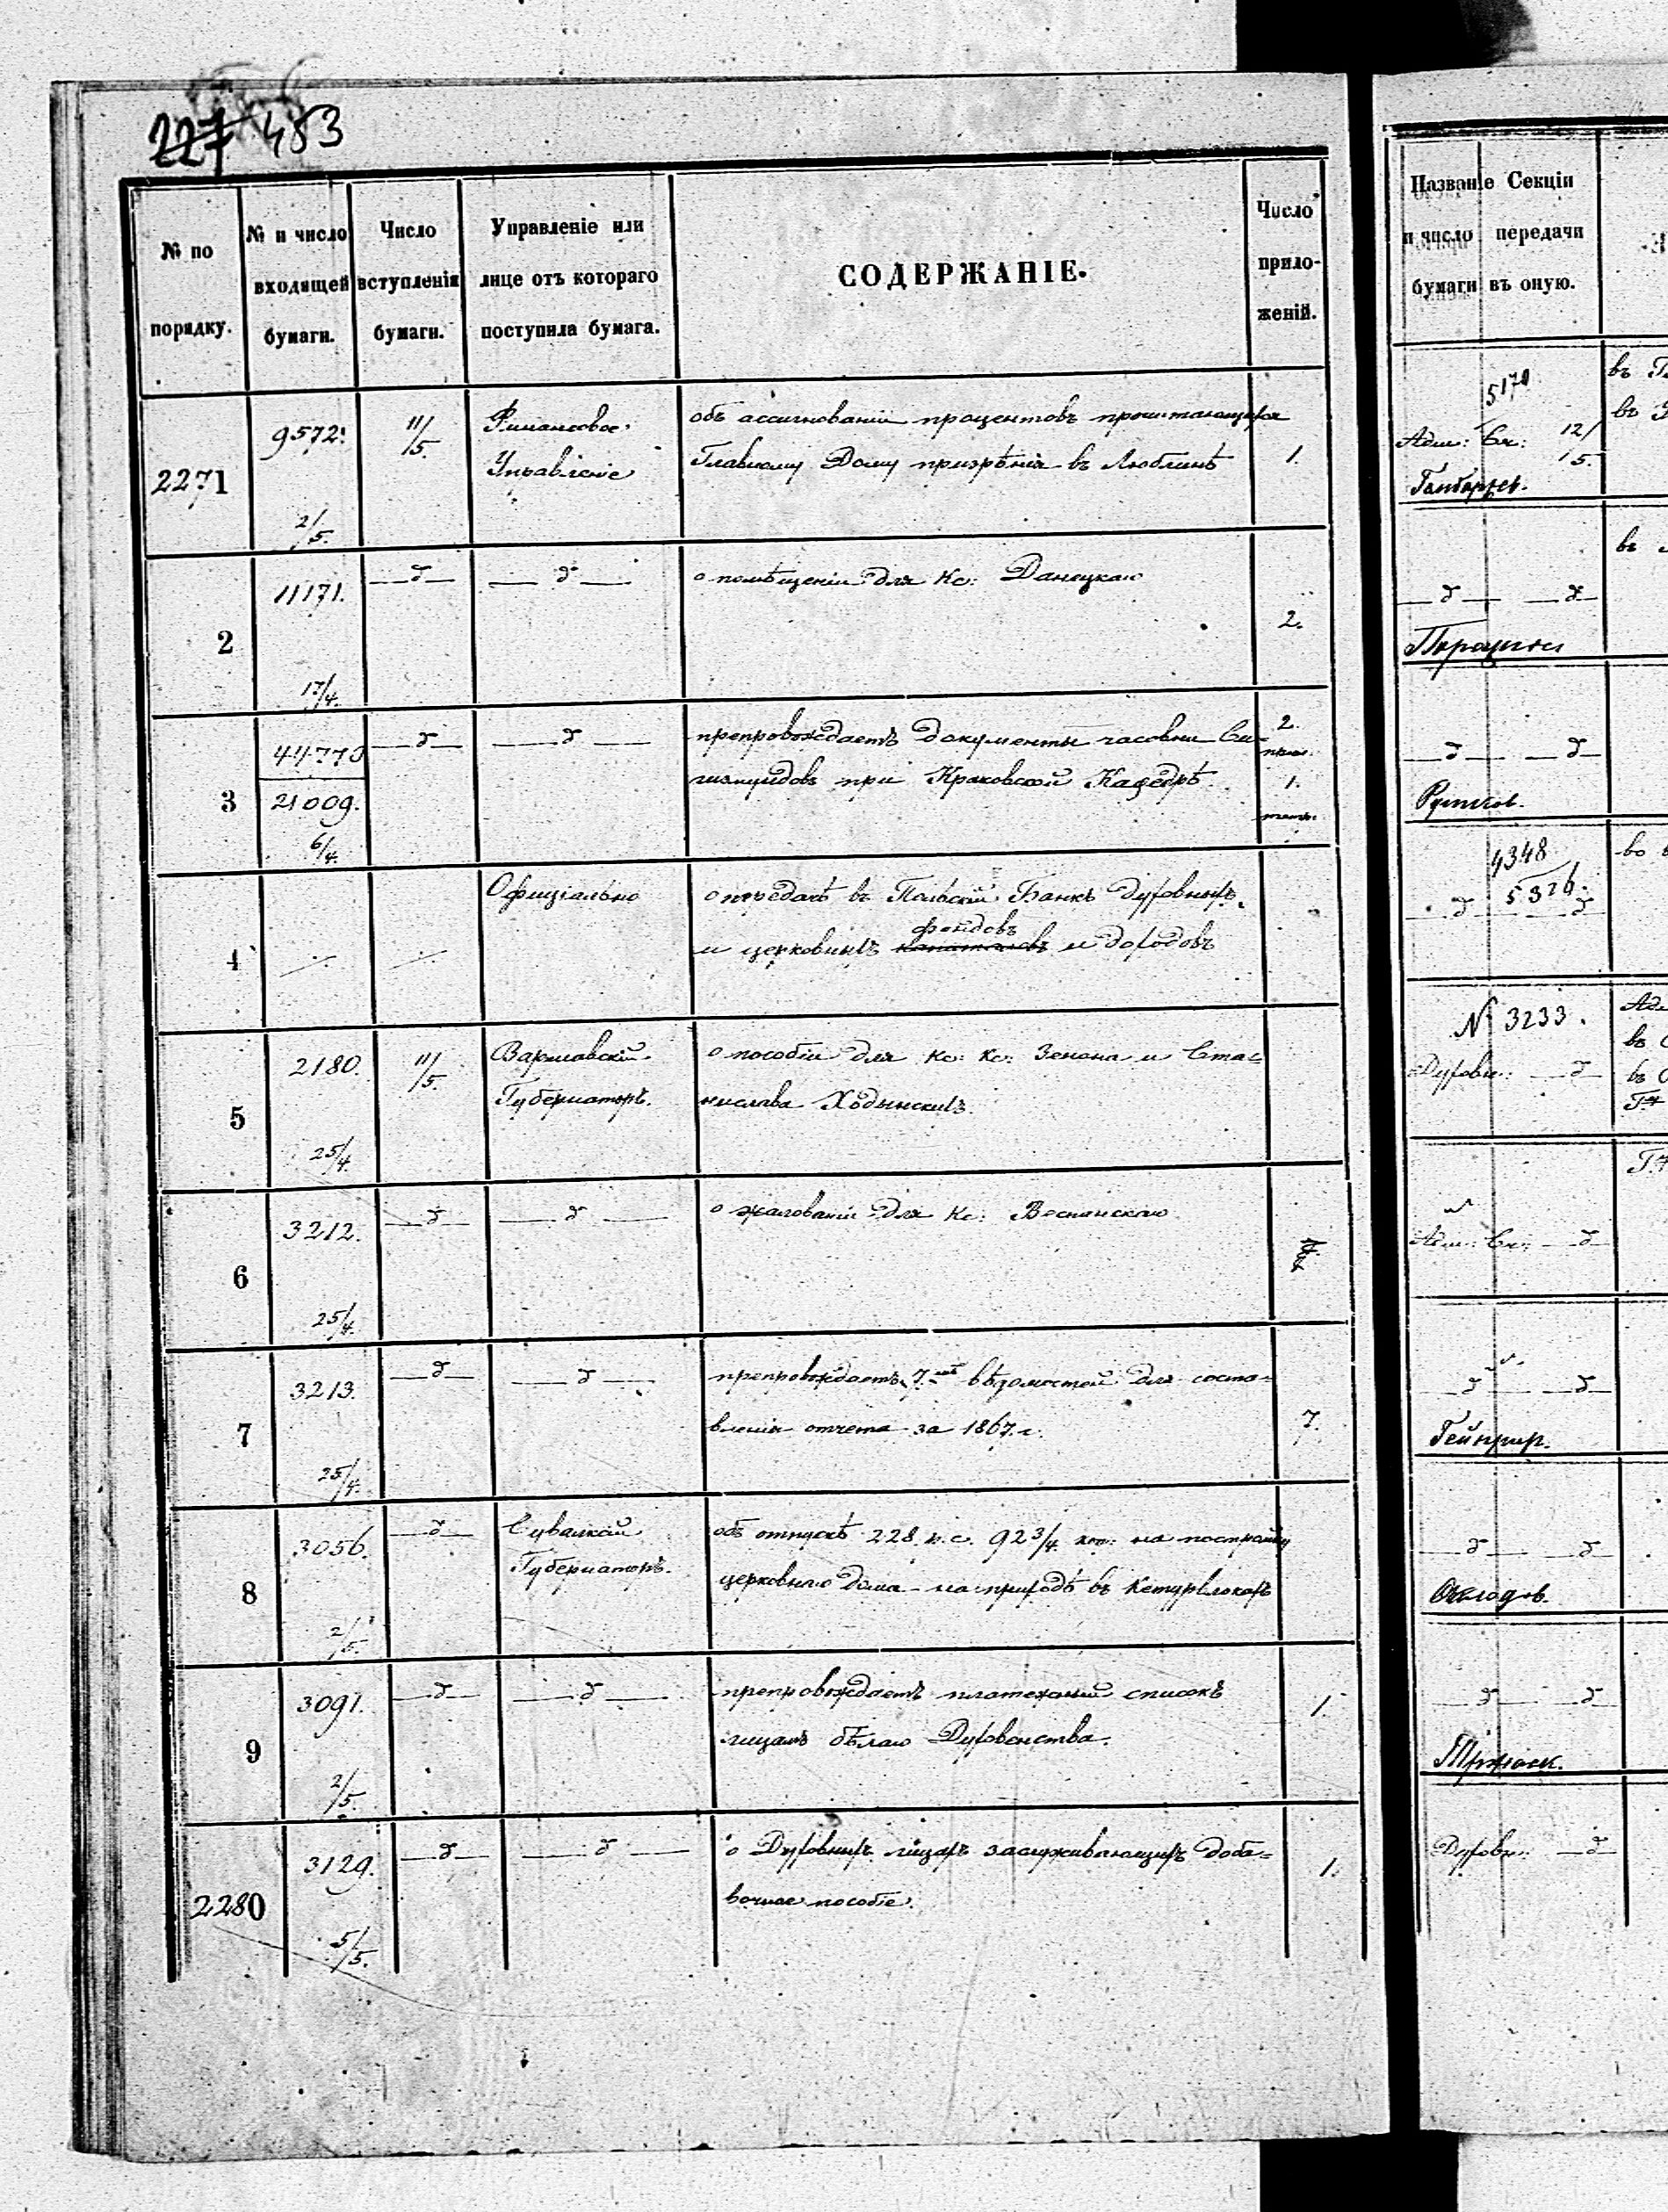 227 483
№ по порядку.
№ и число входящей бумаги.
Число вступленія бумаги.
Управленіе или лице отъ котораго поступила бумага.
СОДЕРЖАНІЕ.
Число приложеній.
Названіе Секціи
и число передачи
бумаги въ оную.
2271
9572.
2/5.
11/5.
Финансовое
Управленіе
объ ассигнованіи процентовъ причитающихся
Главному Дому призрѣнія въ Люблинѣ
1.
5170
Адм: Ск: 12/5.
въ
въ
2
11171.
17/4.
—д—
—д—
о помѣщеніи для Кс: Данецкаго
2.
—д— —д—
въ
3
44770
21009.
6/4.
—д—
—д—
препровождаетъ документы часовни Си-
гизмундовъ при Краковской Кафедрѣ
2.
1.
—д— —д—
4
Офиціально
о передачѣ въ Польскій Банкъ духовныхъ
фондовъ
и церковныхъ капиталовъ и доходовъ
4348
5326.
—д— —д—
во
5
2180.
25/4.
11/5.
Варшавскій
Губернаторъ.
о пособіи для Кс: Кс: Зенона и Ста=
нислава Ходынскихъ.
№ 3233.
Духовн: —д—
въ
въ
6
3212.
25/4.
—д—
—д—
о жалованіи для Кс:
Адм: Ск: —д—
7
3213.
25/4.
—д—
—д—
препровождаетъ 7 вѣдомостей для соста=
вленія отчета за 1867 г.
7.
—д— —д—
8
3056.
2/5.
—д—
Сувалкскій
Губернаторъ.
объ отпускѣ 228 р. с. 92 3/4 коп: на постройку
церковнаго дома на приходѣ въ Кетурвлокахъ
—д— —д—
9
3091.
2/5.
—д—
—д—
препровождаетъ платежный списокъ
лицамъ бѣлаго Духовенства.
1
—д— —д—
2280
3129.
5/5.
—д—
—д—
о Духовныхъ лицахъ заслуживающихъ доба=
вочное пособіе.
1.
Духовн: —д—